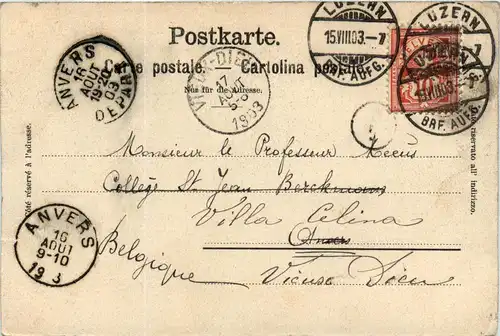 Postkarte.
Carte postale. Cartolina postale.
Nur für die Adresse.
Côté réservé à l'adresse.
riservato all' indirizzo.
LUZERN
15.VIII.03.-7
BRF. AUFG.
LUZERN
15.VIII.03.-7
BRF. AUFG.
HELVETIA
ANVERS
16
AOUT
19-20
03
DEPART
17
AOUT
5-6
1903
ANVERS
16
AOUT
9-10
19 3
Monsieur le Professeur Meeùs
Collège St Jean Berckmans
Villa Celina
Anvers
Belgique
Vieuse Dieu